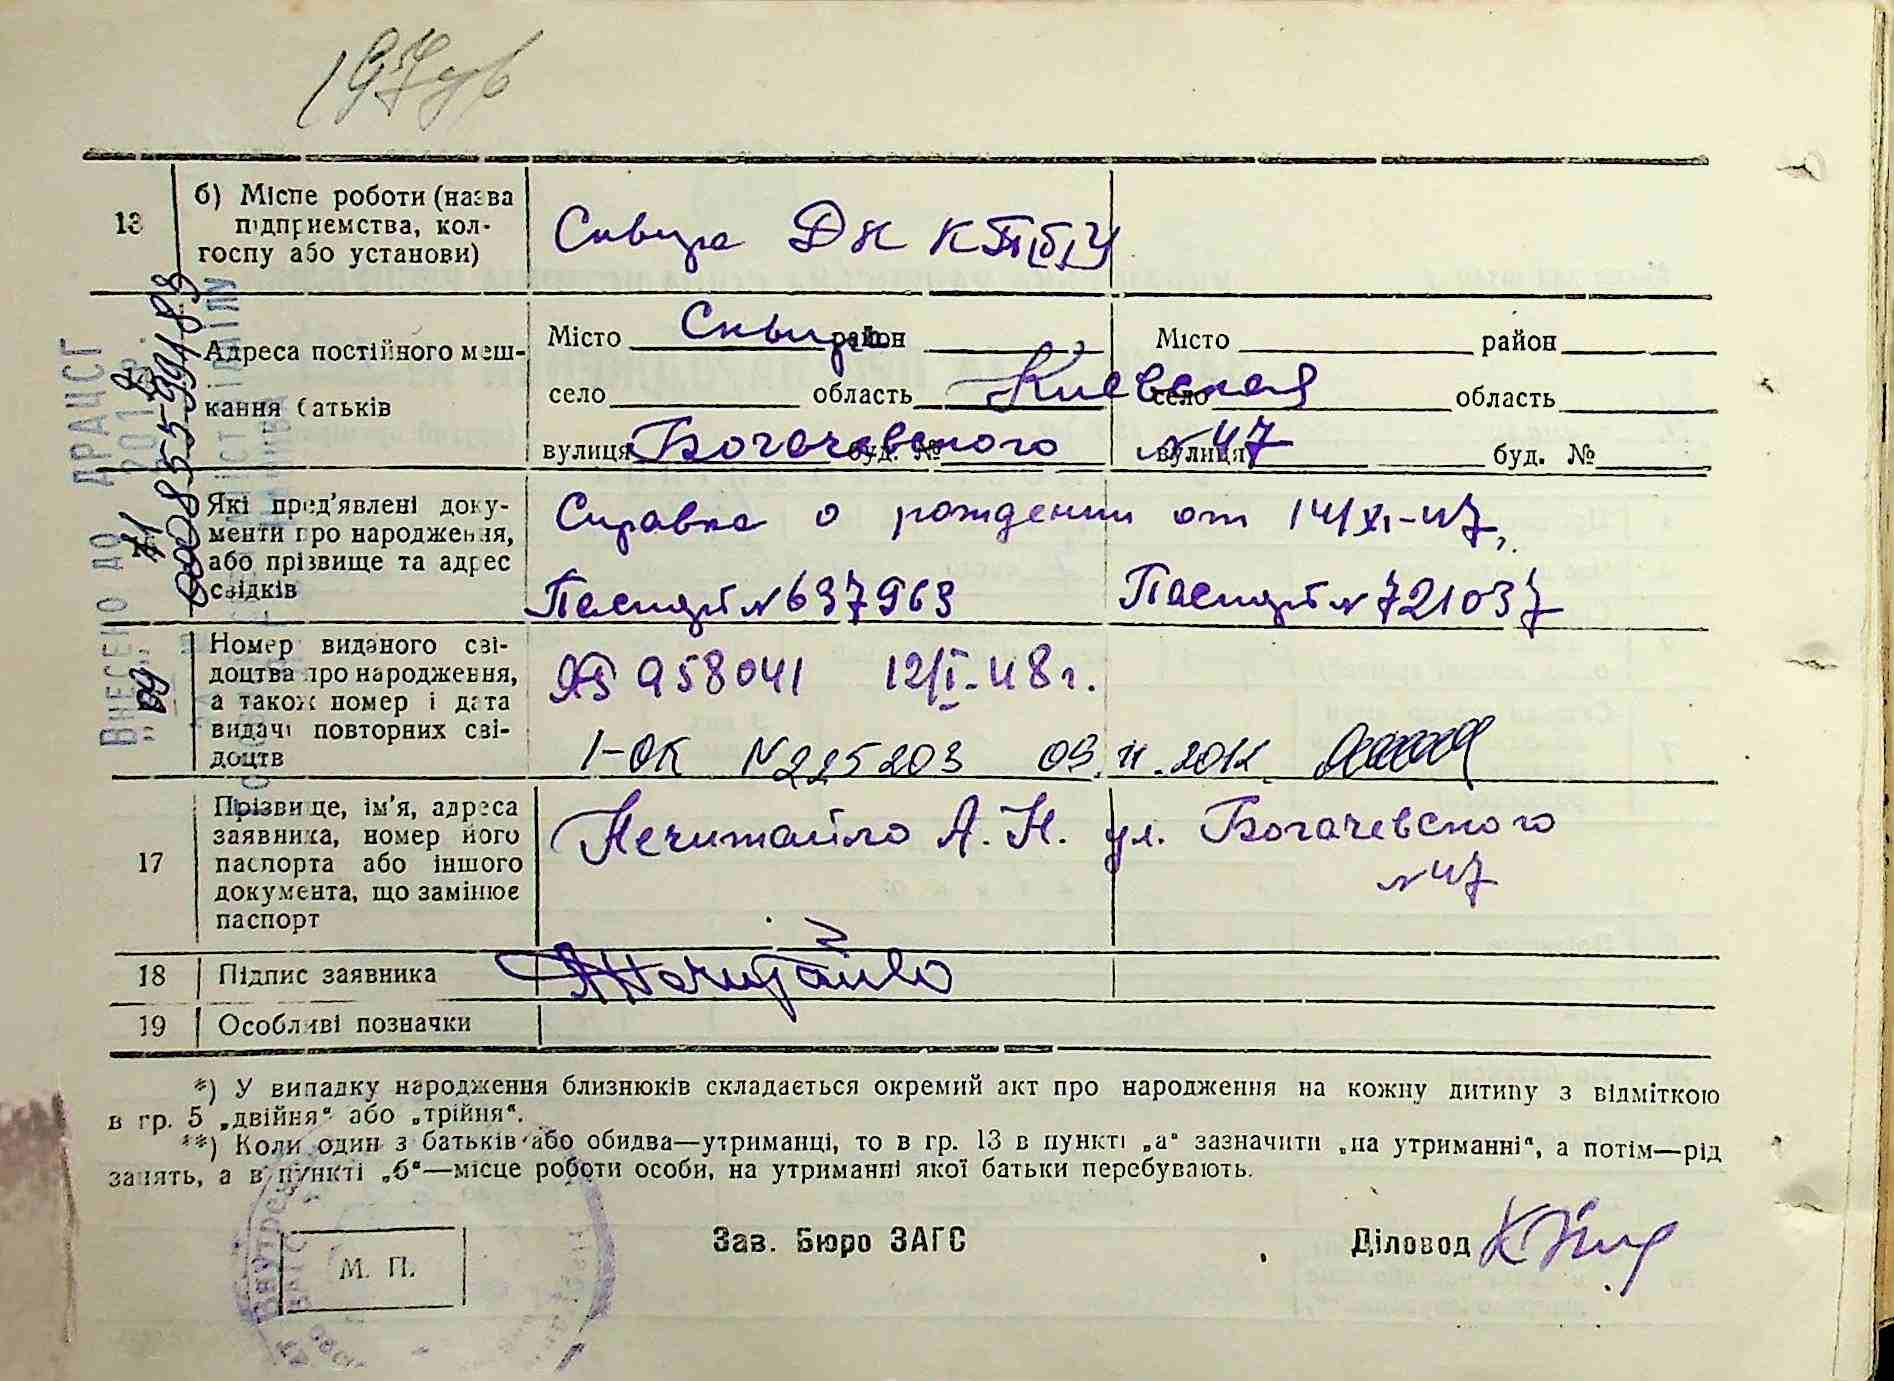 13 б) Місце роботи (назва
підприємства, кол-
госпу або установи)
Сквира ДК
Адреса постійного меш-
кання батьків
Місто Сквира район Місто район
село область Киевская село область
вулиця Богачевского буд. № №47 вулиця буд. №
Які пред'явлені доку-
менти про народження,
або прізвище та адрес
свідків
Справка о рождении от 14/XI-47,
Паспорт №637963 Паспорт №721037
Номер виданого сві-
доцтва про народження,
а також номер і дата
видачі повторних сві-
доцтв
958041 12/I-48г.
I-ОК N225203 09.11.2012
17 Прізвище, ім'я, адреса
заявника, номер його
паспорта або іншого
документа, що замінює
паспорт
Нечитайло А. Н. ул. Богачевского
№47
18 Підпис заявника
Нечитайло
19 Особливі позначки
ВНЕСЕНО ДО ДРАЦСГ
*) У випадку народження близнюків складається окремий акт про народження на кожну дитину з відміткою
в гр. 5 „двійня“ або „трійня“.
**) Коли один з батьків або обидва—утриманці, то в гр. 13 в пункті „а“ зазначити „на утриманні“, а потім—рід
занять, а в пункті „б“—місце роботи особи, на утриманні якої батьки перебувають.
М. П.
Зав. Бюро ЗАГС Діловод